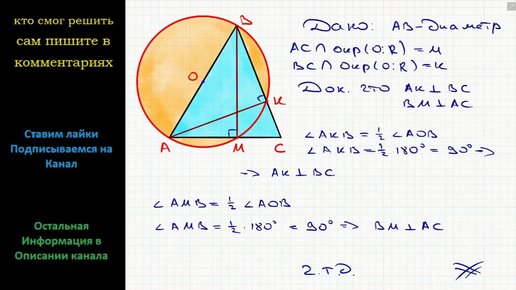 кто смог решить
сам пишите в
комментариях
Ставим лайки
Подписываемся на
Канал
Остальная
Информация в
Описании канала
B
O
K
A
M
C
Дано: AB - диаметр
AC ∩ окр(O;R) = M
BC ∩ окр(O;R) = K
Док. что AK ⊥ BC
BM ⊥ AC
∠AKB = 1/2 ∠AOB
∠AKB = 1/2 180° = 90° =>
=> AK ⊥ BC
∠AMB = 1/2 ∠AOB
∠AMB = 1/2 · 180° = 90° => BM ⊥ AC
ч.т.д.